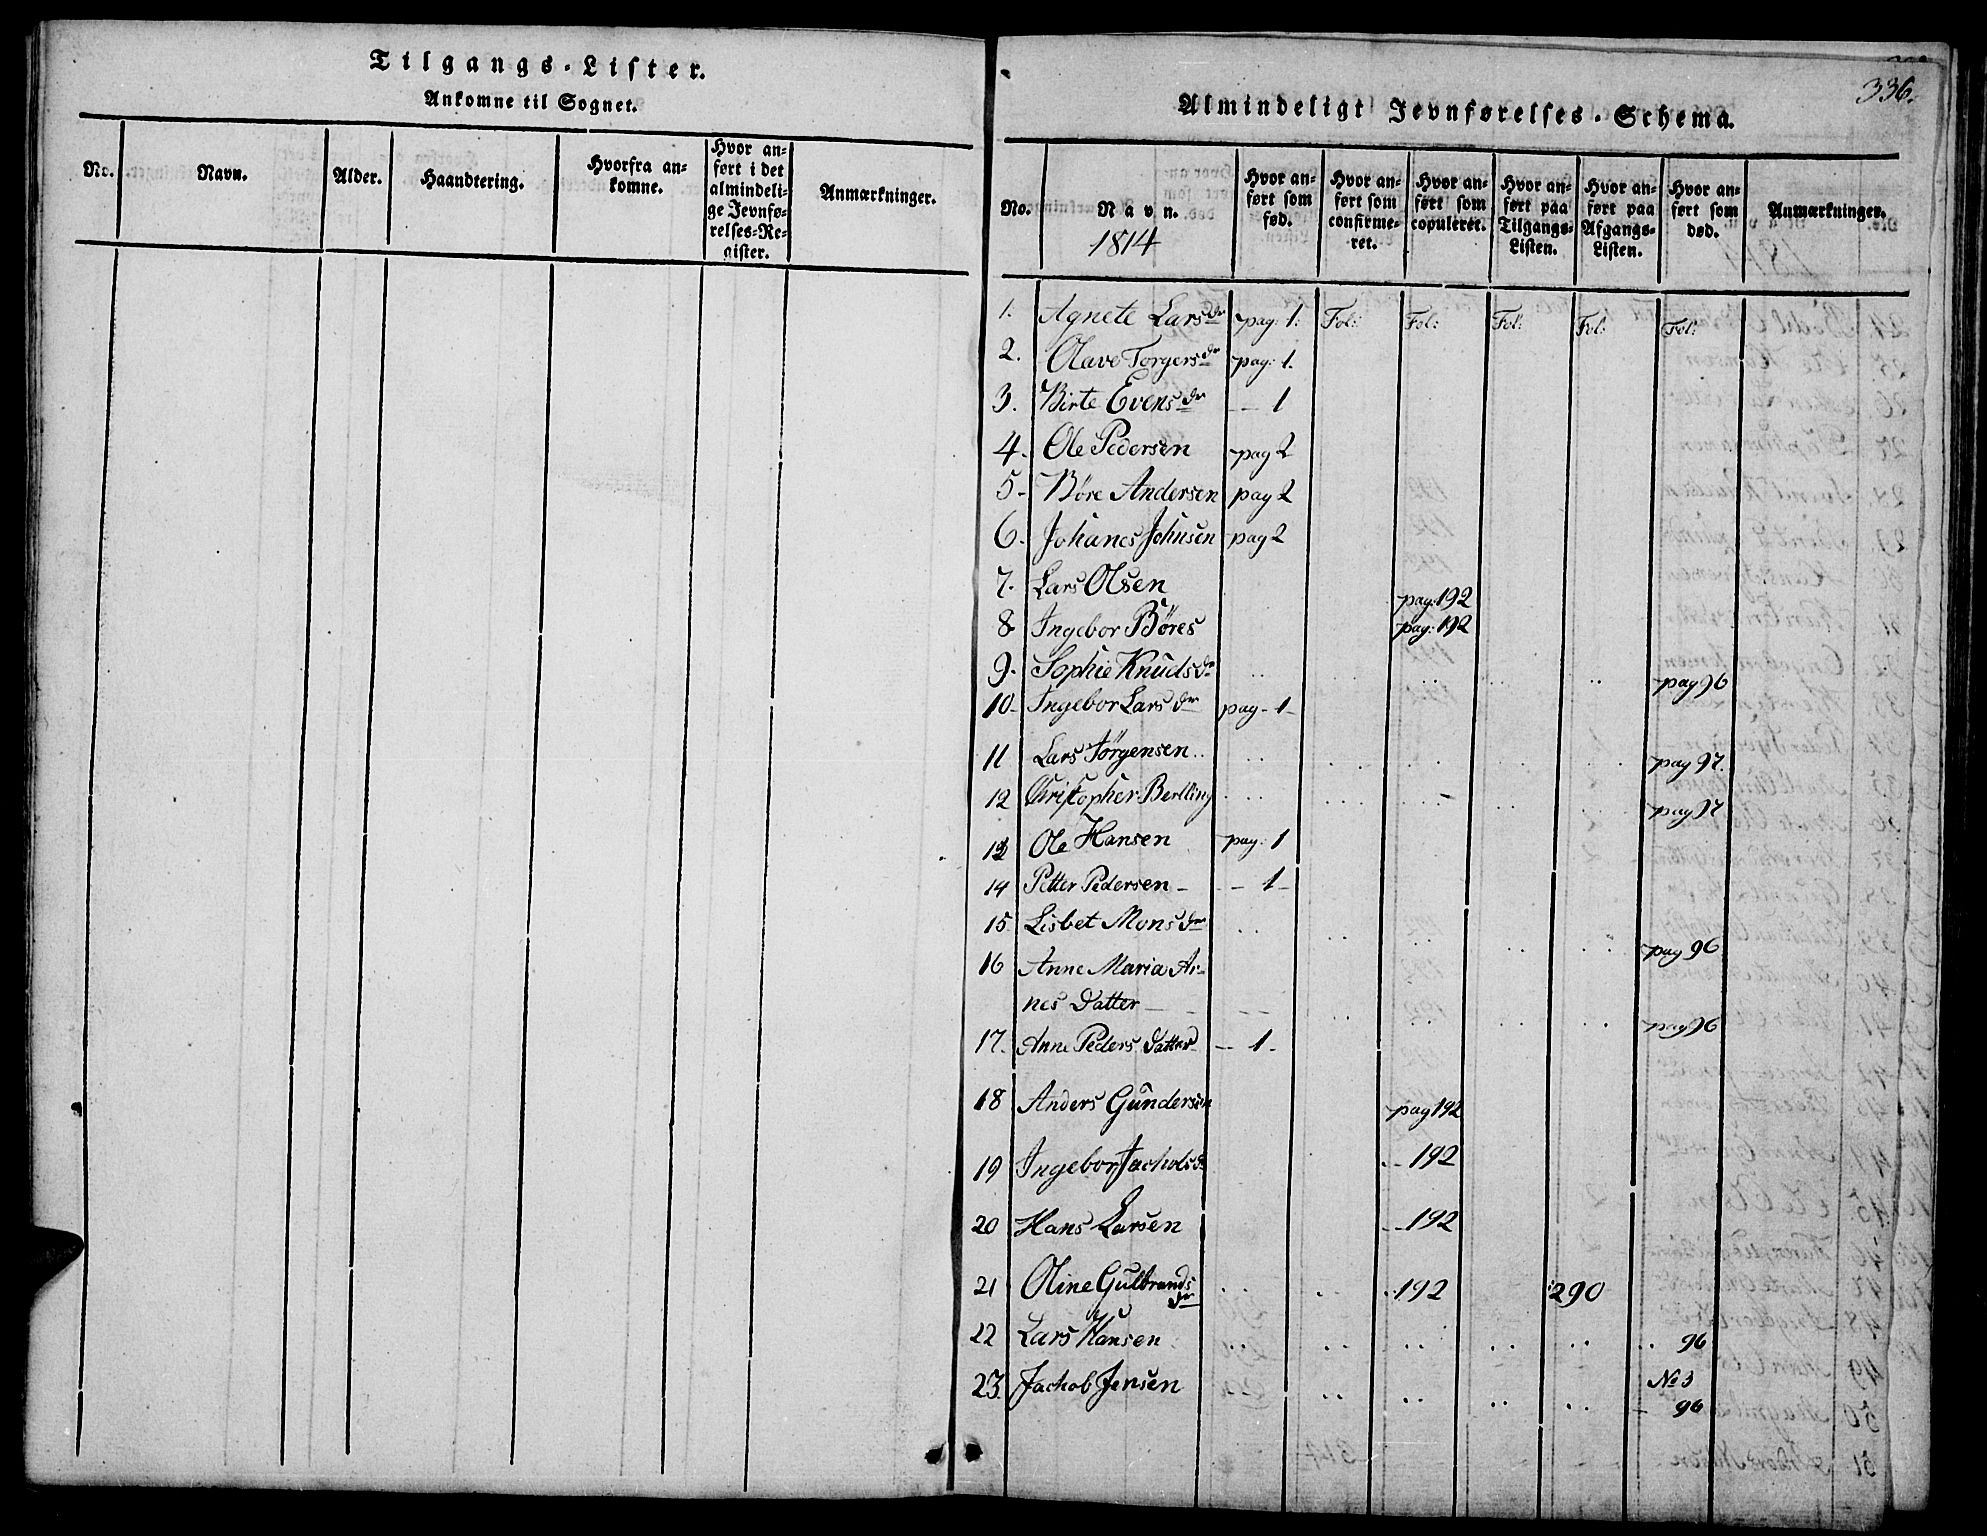 Tilgangs-Lister.
Ankomne til Sognet.
No.
Navn.
Alder.
Haandtering.
Hvorfra an=
komne.
Hvor an=
ført i det
almindeli=
ge Jevnfø=
relses=Re=
gister.
Anmærkninger.
336.
Almindeligt Jevnførelses-Schema.
No.
Navn.
1814
Hvor an=
ført som
fød.
Hvor an=
ført som
confirme=
ret.
Hvor an=
ført som
copuleret.
Hvor an=
ført paa
Tilgangs=
Listen.
Hvor an=
ført paa
Afgangs=
Listen.
Hvor an=
ført som
død.
Anmærkninger.
1. Agnete Larsdr pag: 1: Fol: Fol: Fol: Fol: Fol:
2. Olave Torgersdr pag: 1.
3. Birte Evensdr — 1
4. Ole Pedersen pag 2
5- Böre Andersen pag 2
6. Johanes Johnsen pag 2
7. Lars Olsen pag: 192
8 Ingebor Böres pag: 192
9. Sophie Knudsdr pag 96
10- Ingebor Larsdr pag - 1-
11 Lars Jörgensen pag 97.
12 Christopher Berlling pag 97
13 Ole Hansen pag: 1
14 Petter Pedersen - - 1-
15. Lisbet Monsdr pag 96
16 Anne Maria Ar-
nes Datter — pag 96
17. Anne Peders Datter - 1-
18 Anders Gundersen pag 192
19 Ingebor Jacholsdr - 192
20 Hans Larsen - 192
21 Oline Gulbrands
dr 192 290
22 Lars Hansen 96
23. Jachob Jensen No 3
96